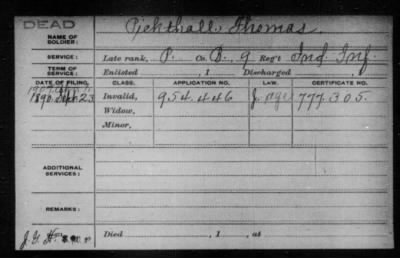 DEAD
NAME OF SOLDIER: Pickthall, Thomas
SERVICE: Late rank, P. Co. D, 9 Reg't Ind. Inf.
TERM OF SERVICE: Enlisted , 1 Discharged , 1
DATE OF FILING. CLASS. APPLICATION NO. CERTIFICATE NO.
1890 Sept 23 Invalid, 954.446 777.305.
Widow,
Minor,
ADDITIONAL SERVICES:
REMARKS:
Died , 1 , at